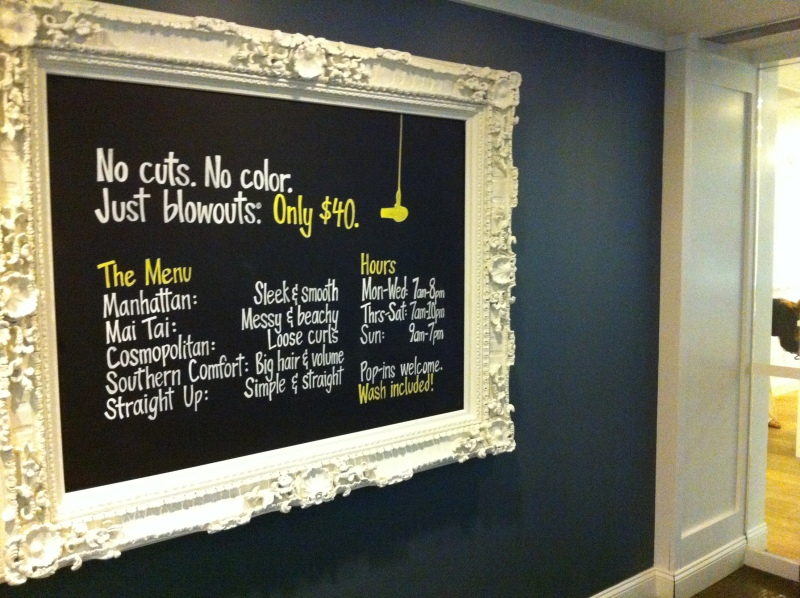 No cuts. No color.
Just blowouts.® Only $40.
The Menu
Manhattan: Sleek & smooth
Mai Tai: Messy & beachy
Cosmopolitan: Loose curls
Southern Comfort: Big hair & volume
Straight Up: Simple & straight
Hours
Mon-Wed: 7am-8pm
Thrs-Sat: 7am-10pm
Sun: 9am-7pm
Pop-ins welcome.
Wash included!